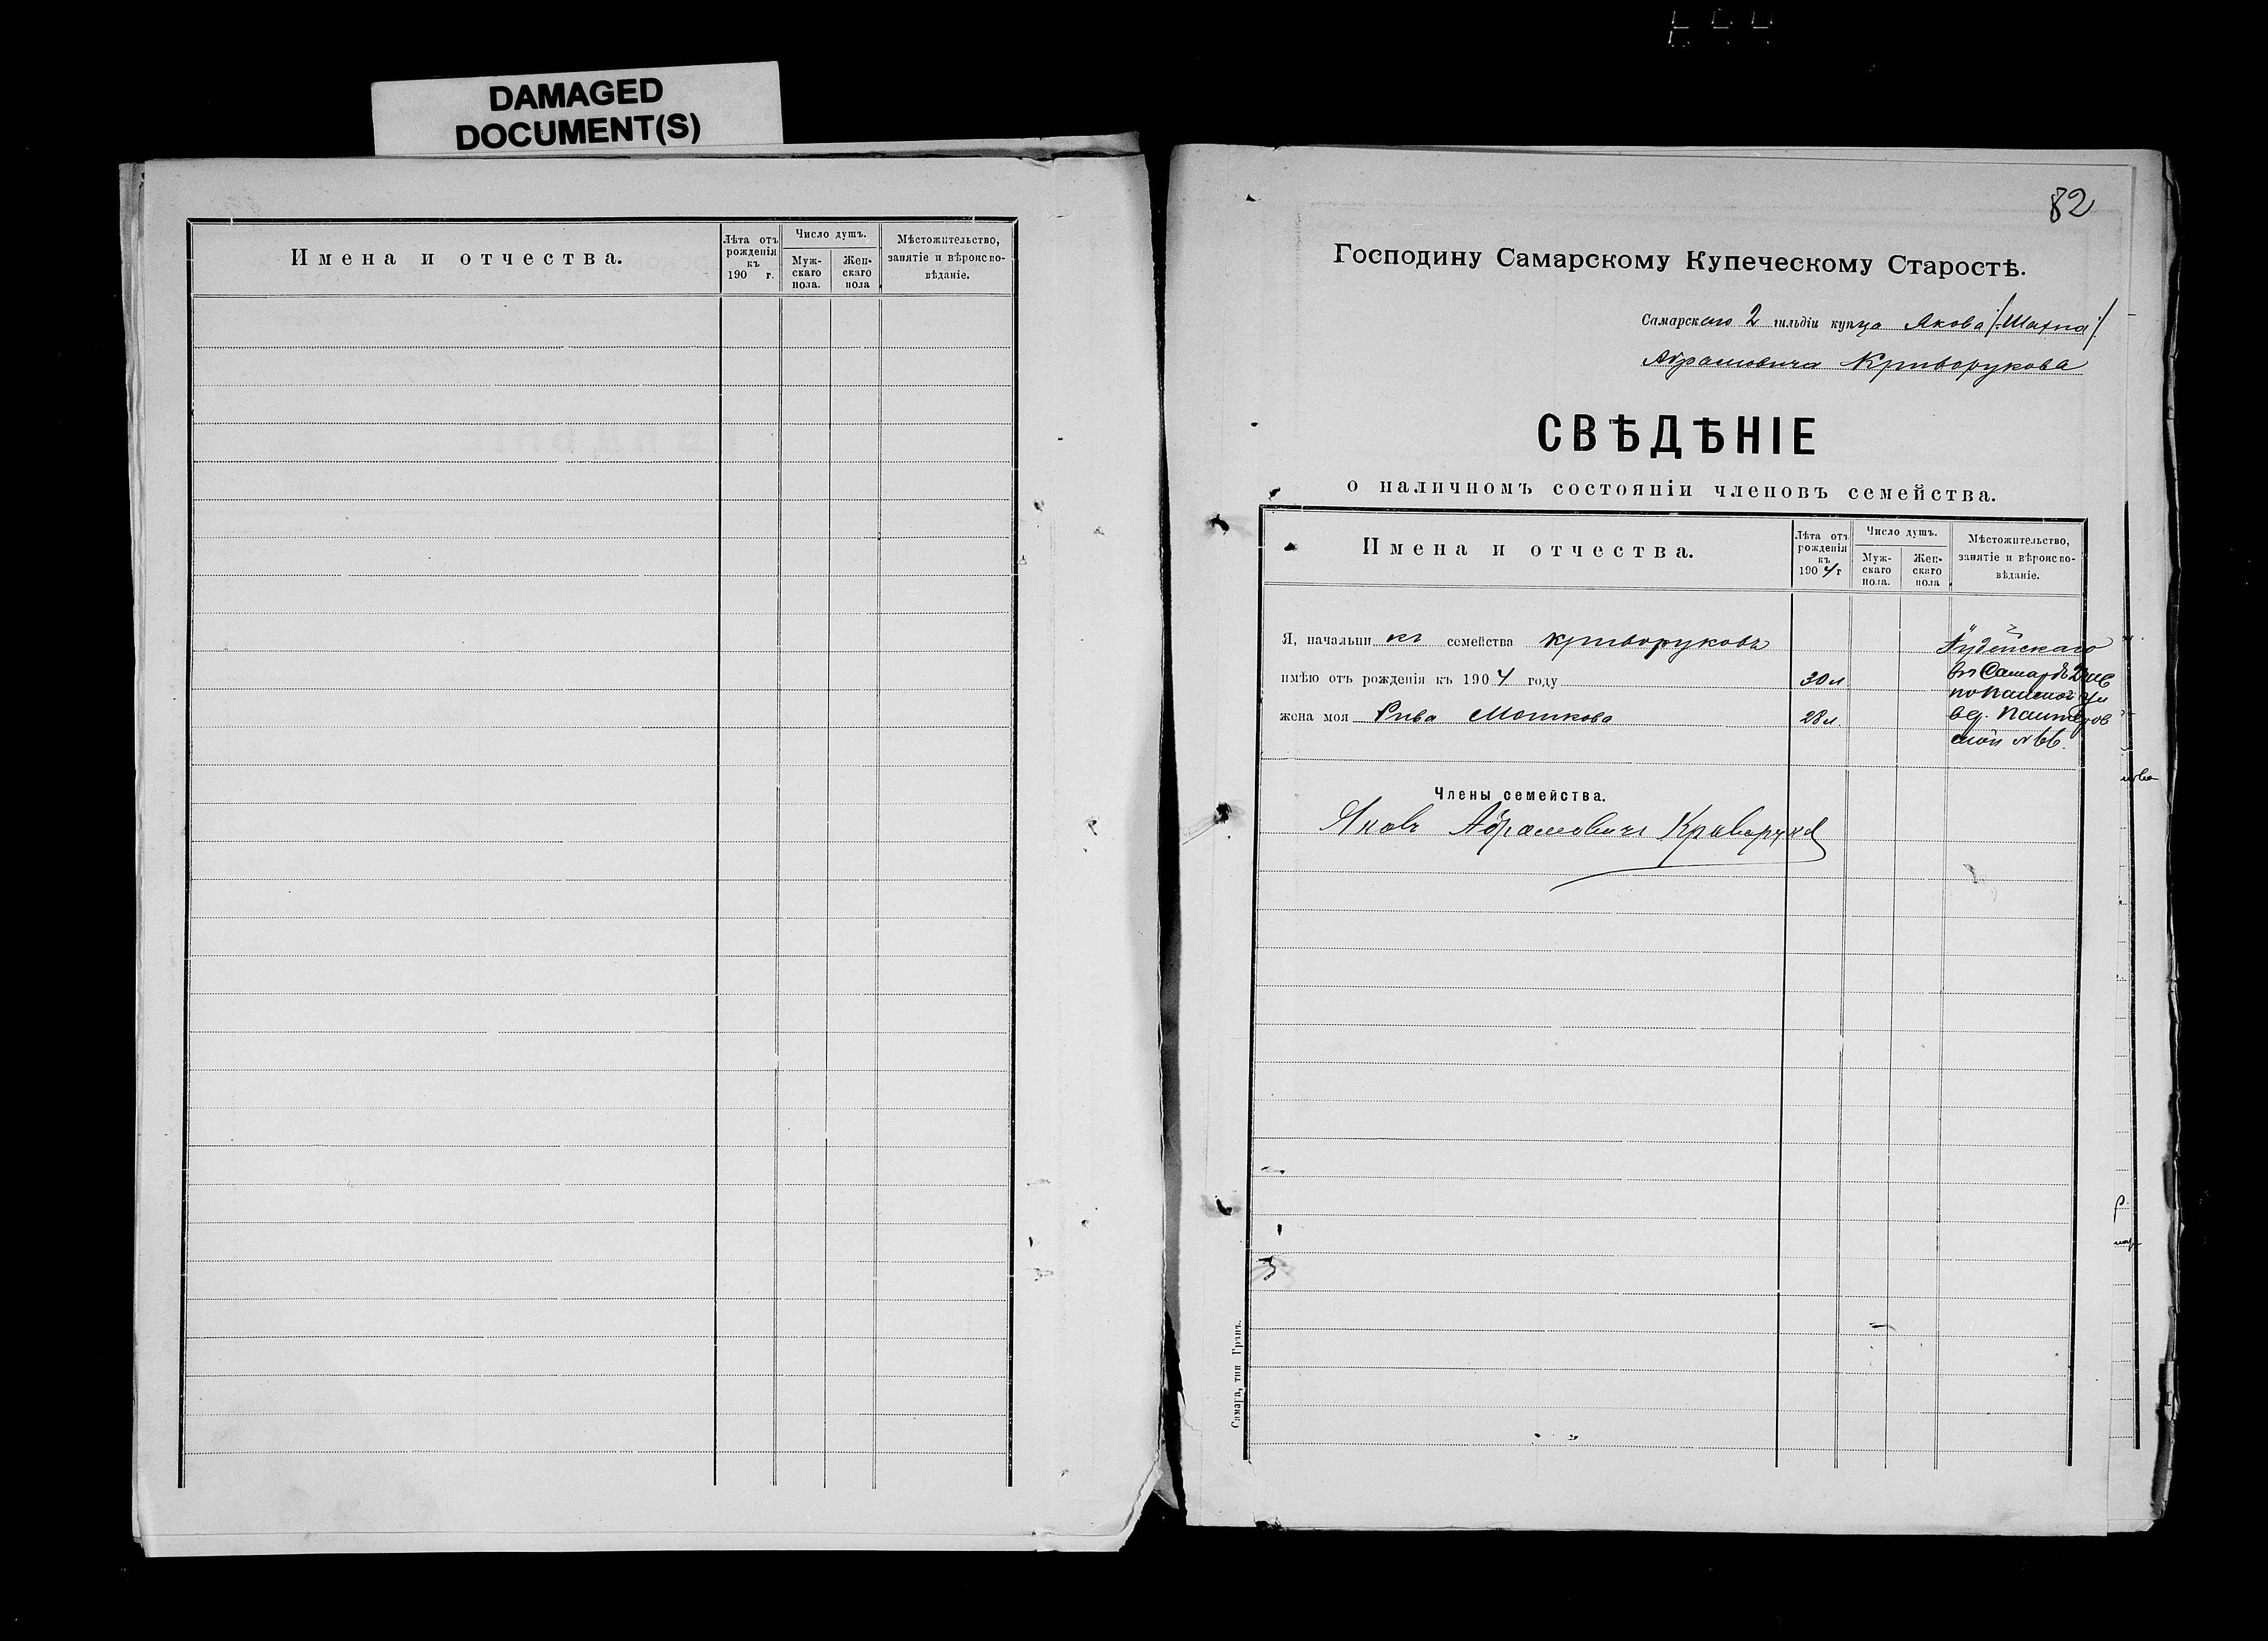 DAMAGED
DOCUMENT(S)
Имена и отчества.
Лѣта отъ рожденія къ 190 г.
Число душъ.
Мужскаго пола.
Женскаго пола
Мѣстожительство, занятіе и вѣроисповѣданіе.
82
Господину Самарскому Купеческому Старостѣ.
Самарскаго 2 гильдіи купца Якова /Шахна/
Абрамовича Криворукова
СВѢДѢНІЕ
о наличномъ состояніи членовъ семейства.
Имена и отчества.
Лѣта отъ рожденія къ 1904 г
Число душъ.
Мужскаго пола.
Женскаго пола
Мѣстожительство, занятіе и вѣроисповѣданіе.
Я, начальникъ семейства Криворуковъ
Іудейскаго
имѣю отъ рожденія къ 1904 году 30 л
въ Самарѣ
жена моя Рива Мошкова 28 л.
Члены семейства.
Яковъ Абрамовичъ Криворуков
Самара, тип Гранъ.